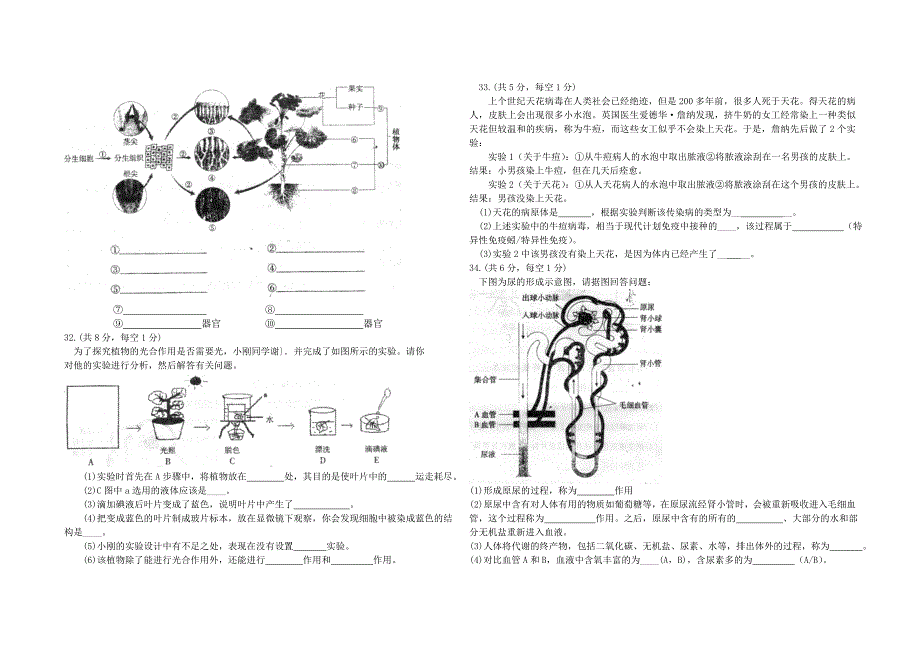 果实
花
种子
⑨
②
③
茎尖
①
②
⑥
分生细胞
分生组织
②
④
⑦
⑩
植物体
根尖
②
⑧
⑤
①
②
③
④
⑤
⑥
⑦
⑧
⑨ 器官
⑩ 器官
32.(共8分，每空1分)
为了探究植物的光合作用是否需要光，小刚同学谢〕．并完成了如图所示的实验。请你
对他的实验进行分析，然后解答有关问题。
a
水
光照
脱色
漂洗
滴碘液
A
B
C
D
E
(1)实验时首先在A步骤中，将植物放在________处，其目的是使叶片中的______运走耗尽。
(2)C图中a选用的液体应该是____。
(3)滴加碘液后叶片变成了蓝色，说明叶片中产生了____________。
(4)把变成蓝色的叶片制成玻片标本，放在显微镜下观察，你会发现细胞中被染成蓝色的结
构是____。
(5)小刚的实验设计中有不足之处，表现在没有设置_______实验。
(6)该植物除了能进行光合作用外，还能进行________作用和________作用。
33.(共5分，每空1分)
上个世纪天花病毒在人类社会已经绝迹，但是200多年前，很多人死于天花。得天花的病
人，皮肤上会出现很多小水泡。英国医生爱德华·詹纳发现，挤牛奶的女工经常染上一种类似
天花但较温和的疾病，称为牛痘，而这些女工似乎不会染上天花。于是，詹纳先后做了2个实
验：
实验1（关于牛痘）：①从牛痘病人的水泡中取出脓液②将脓液涂刮在一名男孩的皮肤上。
结果：小男孩染上牛痘，但在几天后痊愈。
实验2（关于天花）：①从人天花病人的水泡中取出脓液②将脓液涂刮在这个男孩的皮肤上。
结果：男孩没染上天花。
(1)天花的病原体是_______，根据实验判断该传染病的类型为_____________。
(2)上述实验中的牛痘病毒，相当于现代计划免疫中接种的____，该过程属于____________（特
异性免疫蚓/特异性免疫）。
(3)实验2中该男孩没有染上天花，是因为体内已经产生了_______。
34.(共6分，每空1分)
下图为尿的形成示意图，请据图回答问题：
出球小动脉
入球小动脉
原尿
肾小球
肾小囊
肾小管
集合管
毛细血管
A血管
B血管
尿液
(1)形成原尿的过程，称为________作用
(2)原尿中含有对人体有用的物质如葡萄糖等，在原尿流经肾小管时，会被重新吸收进入毛细血
管，这个过程称为__________作用。之后，原尿中含有的所有的___________、大部分的水和部
分无机盐重新进入血液。
(3)人体将代谢的终产物，包括二氧化碳、无机盐、尿素、水等，排出体外的过程，称为_______。
(4)对比血管A和B，血液中含氧丰富的为____(A，B)，含尿素多的为__________（A/B）。